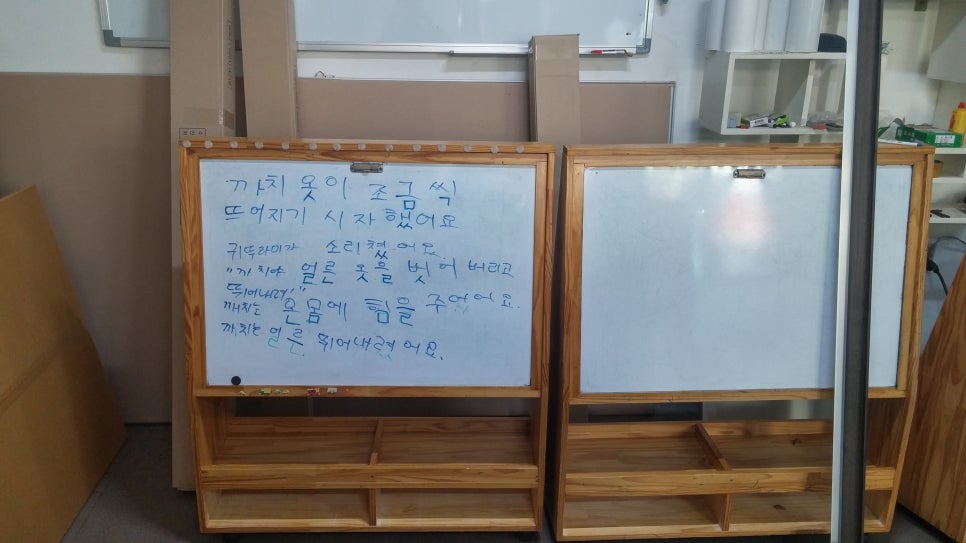 까치 옷이 조금씩
뜨어지기 시자했어요
귀뚜라미가 소리쳤어요
"까치야 얼른 옷을 벗어 버리고
뛰어내려!"
까치는 온몸에 힘을 주었어요.
까치는 얼른 뛰어내렸어요.